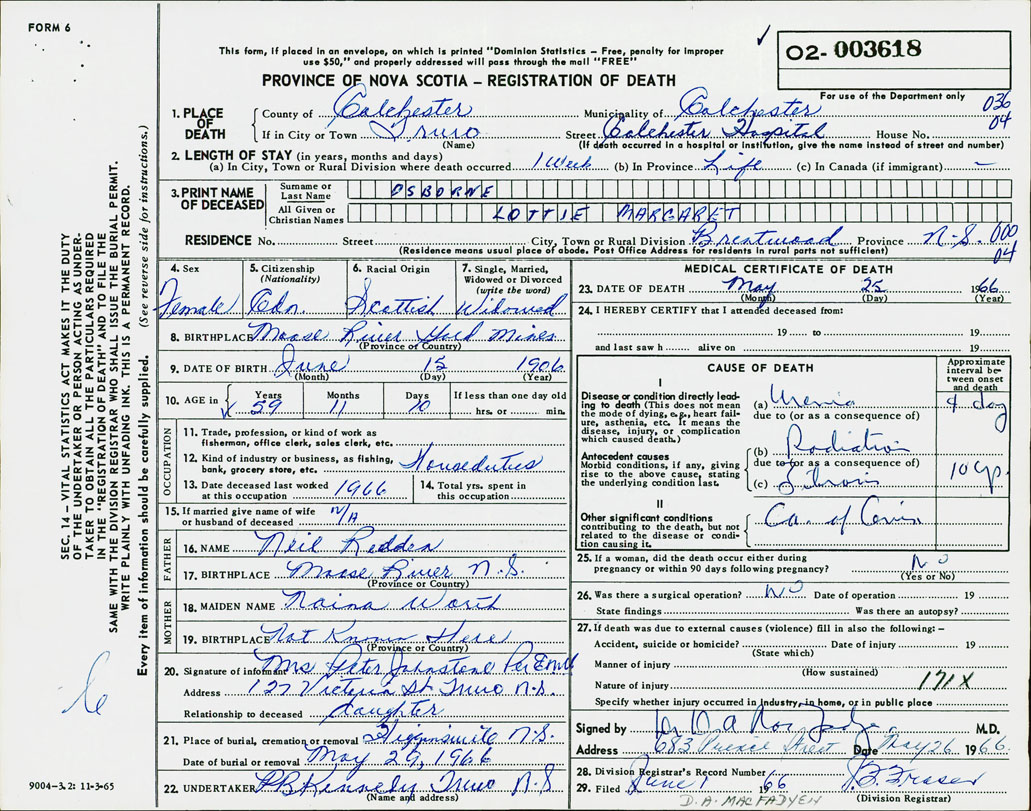 FORM 6
This form, if placed in an envelope, on which is printed "Dominion Statistics – Free, penalty for improper
use $50," and properly addressed will pass through the mail "FREE"
✓ 02- 003618
PROVINCE OF NOVA SCOTIA – REGISTRATION OF DEATH
For use of the Department only
1. PLACE OF DEATH County of Colchester Municipality of Colchester 036
If in City or Town Truro (Name) Street Colchester Hospital House No. 04
(If death occurred in a hospital or institution, give the name instead of street and number)
2. LENGTH OF STAY (in years, months and days)
(a) In City, Town or Rural Division where death occurred 1 Week (b) In Province Life (c) In Canada (if immigrant) —
3. PRINT NAME OF DECEASED Surname or Last Name OSBORNE
All Given or Christian Names LOTTIE MARGARET
RESIDENCE No. Street City, Town or Rural Division Brentwood Province N-S. 000
(Residence means usual place of abode. Post Office Address for residents in rural parts not sufficient) 04
4. Sex Female
5. Citizenship (Nationality) Cdn.
6. Racial Origin Scottish
7. Single, Married, Widowed or Divorced (write the word) Widowed
8. BIRTHPLACE Moose River Gold Mines
(Province or Country)
9. DATE OF BIRTH June 15 1906
(Month) (Day) (Year)
10. AGE in Years 59 Months 11 Days 10 If less than one day old hrs. or min.
OCCUPATION
11. Trade, profession, or kind of work as
fisherman, office clerk, sales clerk, etc.
12. Kind of industry or business, as fishing,
bank, grocery store, etc. Houseduties
13. Date deceased last worked
at this occupation 1966
14. Total yrs. spent in
this occupation
15. If married give name of wife
or husband of deceased N/A
FATHER
16. NAME Neil Redden
17. BIRTHPLACE Moose River N.S.
(Province or Country)
MOTHER
18. MAIDEN NAME Naina Worth
19. BIRTHPLACE Not Known Here
(Province or Country)
20. Signature of informant Mrs Peter Johnstone Per
Address 127 Victoria St Truro N.S.
Relationship to deceased daughter
21. Place of burial, cremation or removal Higginsville N.S.
Date of burial or removal May 29, 1966
22. UNDERTAKER Kennedy Truro N.S.
(Name and address)
MEDICAL CERTIFICATE OF DEATH
23. DATE OF DEATH May 25 1966
(Month) (Day) (Year)
24. I HEREBY CERTIFY that I attended deceased from:
19 to 19
and last saw h alive on 19
CAUSE OF DEATH
Approximate interval between onset and death
I
Disease or condition directly leading to death (This does not mean the mode of dying, e.g., heart failure, asthenia, etc. It means the disease, injury, or complication which caused death.)
(a) Uremia 4 day
due to (or as a consequence of)
Antecedent causes
Morbid conditions, if any, giving rise to the above cause, stating the underlying condition last.
(b) Radiation
due to (or as a consequence of)
(c) Fibrosis 10 yr.
II
Other significant conditions contributing to the death, but not related to the disease or condition causing it.
Ca. of Cervix
25. If a woman, did the death occur either during
pregnancy or within 90 days following pregnancy? No
(Yes or No)
26. Was there a surgical operation? No Date of operation 19
State findings Was there an autopsy?
27. If death was due to external causes (violence) fill in also the following: –
Accident, suicide or homicide? Date of injury 19
(State which)
Manner of injury
(How sustained)
Nature of injury 171X
Specify whether injury occurred in industry, in home, or in public place
Signed by Dr. D A M.D.
Address 683 Prince Street Date May 26 1966
28. Division Registrar's Record Number
29. Filed June 1 1966 Fraser
(Division Registrar)
D. A. MACFADYEN
SEC. 14 – VITAL STATISTICS ACT MAKES IT THE DUTY
OF THE UNDERTAKER OR PERSON ACTING AS UNDER-
TAKER TO OBTAIN ALL THE PARTICULARS REQUIRED
IN THE "REGISTRATION OF DEATH" AND TO FILE THE
SAME WITH THE DIVISION REGISTRAR WHO SHALL ISSUE THE BURIAL PERMIT.
WRITE PLAINLY WITH UNFADING INK. THIS IS A PERMANENT RECORD.
Every item of information should be carefully supplied. (See reverse side for instructions.)
9004-3.2: 11-3-65